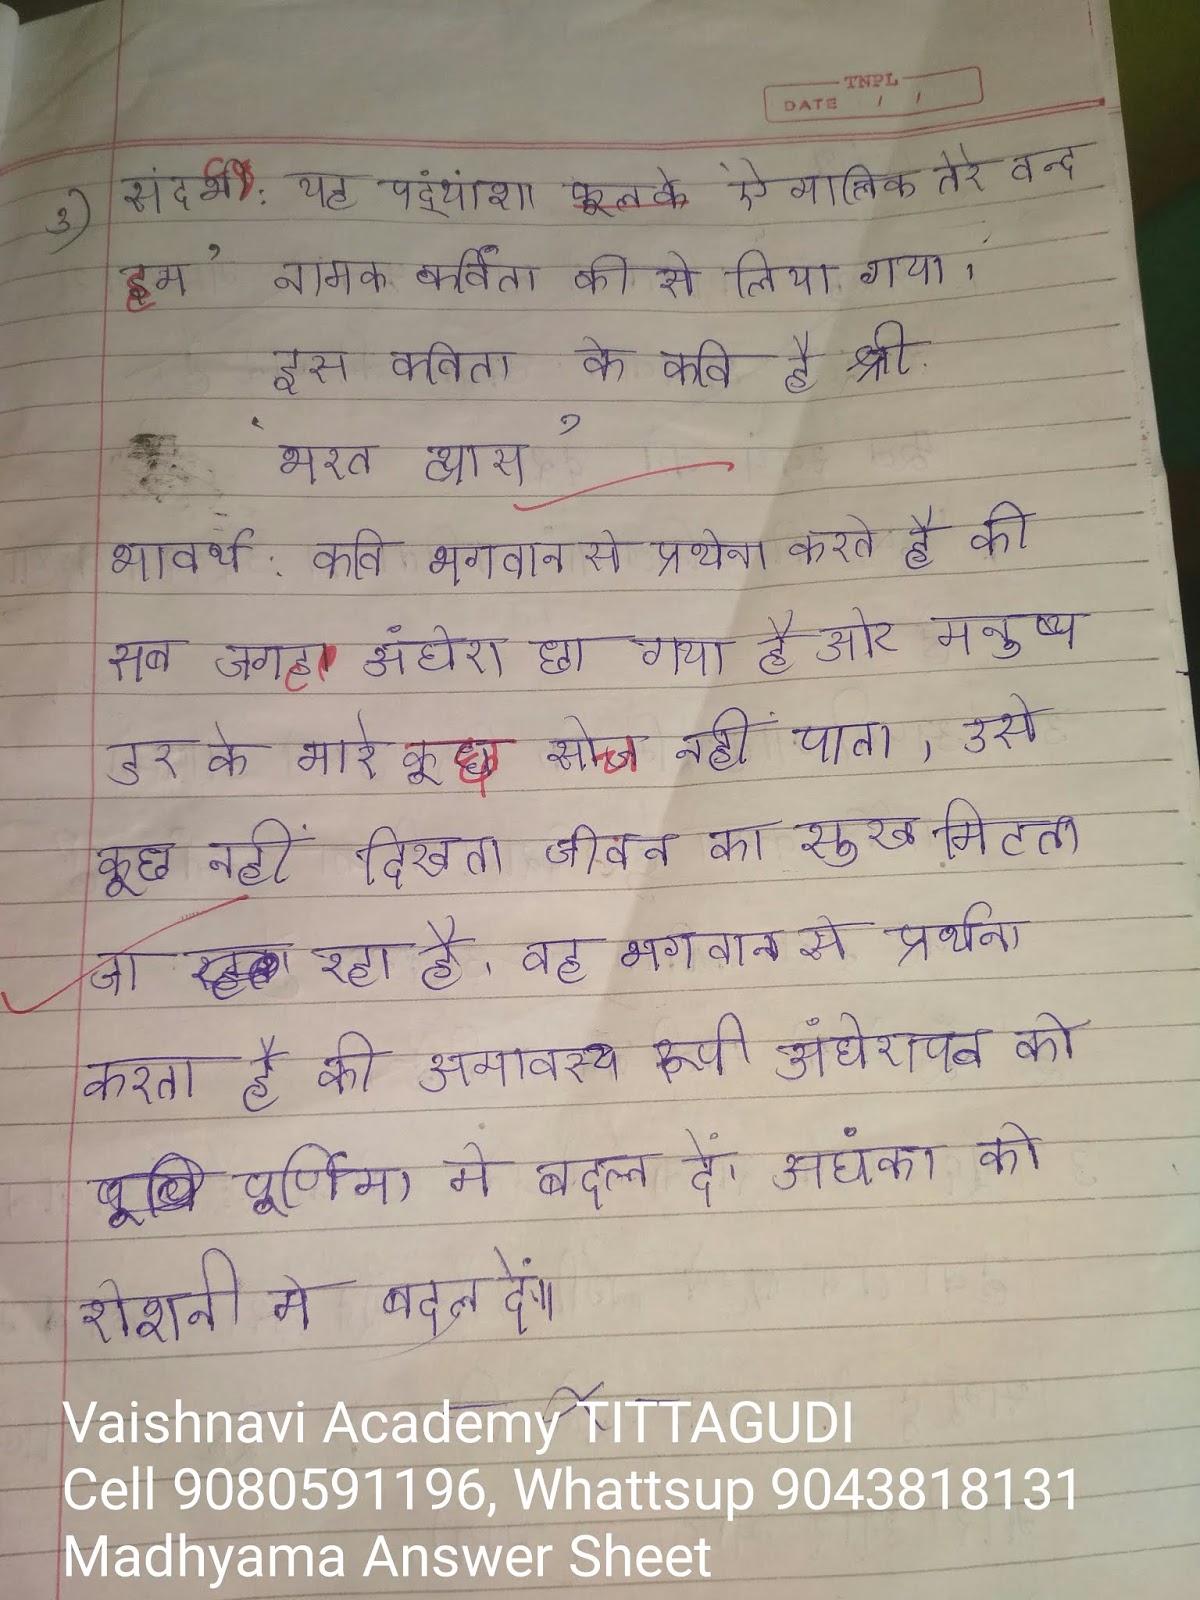 TNPL
DATE / /
3) संदर्भ: यह पद्यांशा फूलके 'ऐ मालिक तेरे वन्द
हम' नामक कविता की से लिया गया।
इस कविता के कवि है श्री.
'भरत व्यास'
भावर्थ: कवि भगवान से प्रथेना करते है की
सब जगह अंधेरा छा गया है ओर मनुष्य
डर के मारे कूछ सोच नहीं पाता, उसे
कूछ नहीं दिखता जीवन का सुख मिटता
जा रहा है, वह भगवान से प्रर्थना
करता है की अमावस्य रूपी अंधेरापन को
पूर्णिमा मे बदल दें। अधंका को
रोशनी मे बदल दें॥
Vaishnavi Academy TITTAGUDI
Cell 9080591196, Whattsup 9043818131
Madhyama Answer Sheet